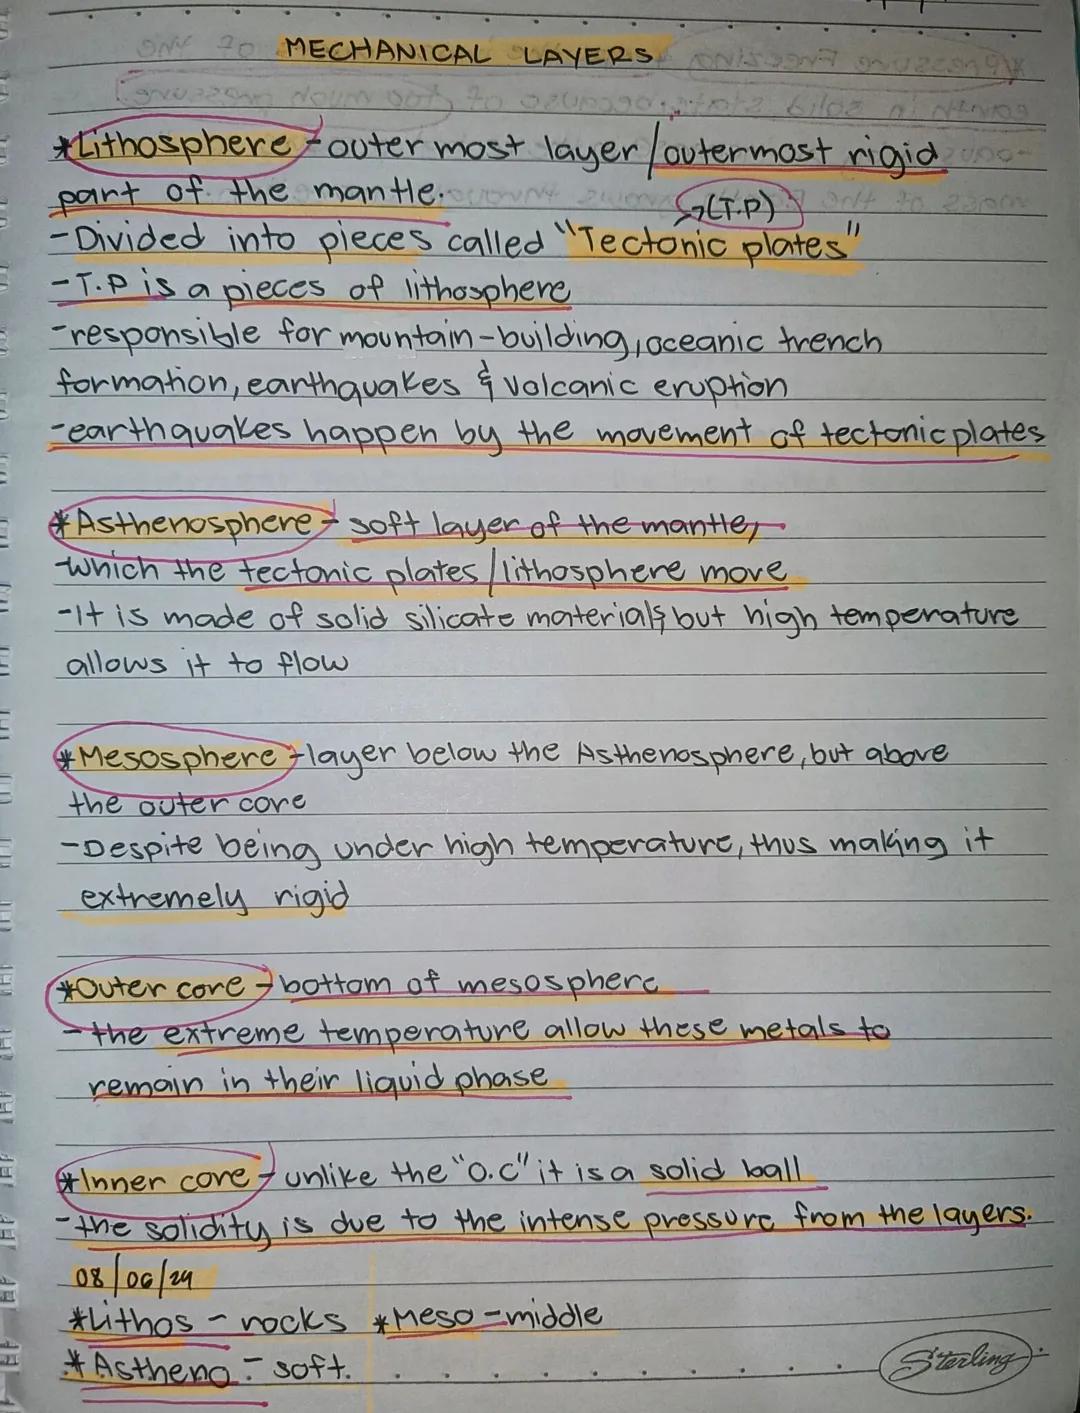 MECHANICAL LAYERS
*Lithosphere - outer most layer/outermost rigid
part of the mantle.
→(T.P)
- Divided into pieces called "Tectonic plates"
- T.P is a pieces of lithosphere
- responsible for mountain-building, oceanic trench
formation, earthquakes & volcanic eruption
- earthquakes happen by the movement of tectonic plates
*Asthenosphere - soft layer of the mantle,
which the tectonic plates/lithosphere move
- It is made of solid silicate materials but high temperature
allows it to flow
*Mesosphere - layer below the Asthenosphere, but above
the outer core
- Despite being under high temperature, thus making it
extremely rigid
*Outer core - bottom of mesosphere
- the extreme temperature allow these metals to
remain in their liquid phase
*Inner core - unlike the "O.C" it is a solid ball
- the solidity is due to the intense pressure from the layers.
08/06/24
*Lithos - rocks *Meso - middle
*Astheno - soft.
Sterling